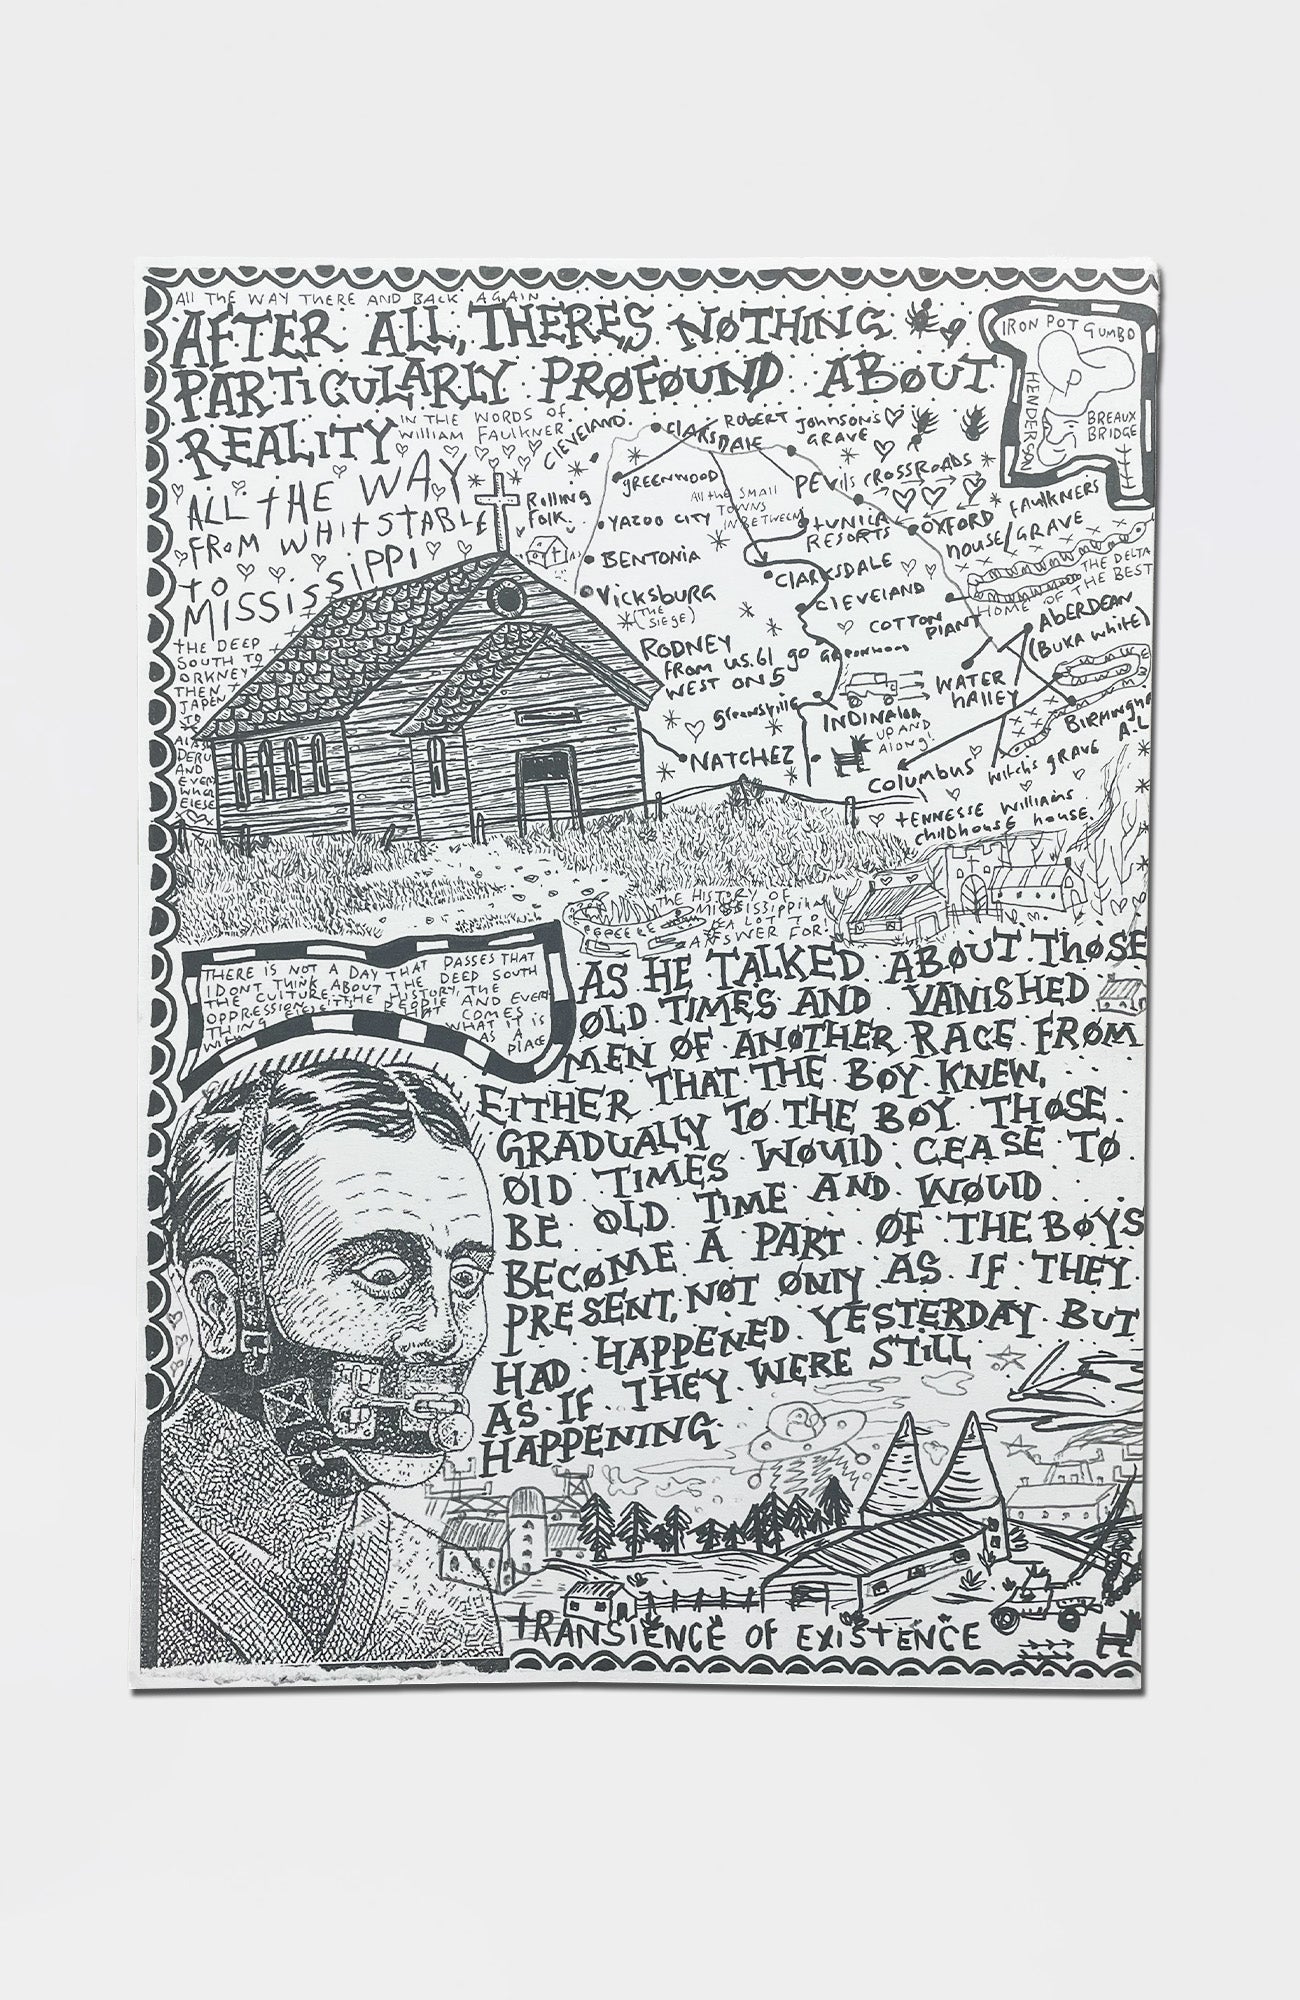 All THE WAY THERE AND BACK AGAIN
AFTER ALL, THERES NØTHING
PARTICULARLY PRØFØUND ABØUT
REALITY
IN THE WORDS OF
William FAULKNER
ALL tHE WAY
FROM WHITSTABLE
tO
MISSISSIPPI
THE DEEP
SOUTH TO
ORKNEY
THEN T
JAPEN
TO
PERU
AND
EVERY
WHER
ElESE
CLEVELAND.
ClARKSDAlE
ROBERT JOHNSON'S
GRAVE
IRON POT GUMBO
HENDERSON
BREAUX
BRIDGE
Rolling
Folk.
GREENWOOD
All the SMALL
TOWNS
IN BETWEEN
DEVils CROSSROADS
YAZOO CITY
tUNICA
RESORTS
OXFORD
FAUlKNERS
house/GRAVE
BENTONIA
ClARKSDALE
THE DELTA
THE BEST
HOME OF THE
Vicksburg
(THE
SIEGE)
CLEVELAND
COTTON
PlANT
ABERDEAN
(BUKA white)
RODNEY
FROM US.61 go
WEST ON 5
Greenwood
WATER
VAllEY
greensville
INDINAlOA
UP AND
AlONG!
BiRMINGHA
A.L
NATCHEZ
COLUMBUS
Witch's GRAVE
tENNESSE Williams
childhouse house.
THE HISTORY OF
MISSISSIPPI HAS
A LOT TO
ANSWER FOR!
THERE IS NOT A DAY THAT PASSES THAT
I DONT THINK ABOUT THE DEEP SOUTH
THE CULTURE, THE HISTORY, THE
OPPRESSION, THE PEOPlE AND EVERY
THING THAT COMES
WITH WHAT IT IS
AS A
PlACE
AS HE TALKED ABØUT THØSE
ØLD TIMES AND VANISHED
MEN ØF ANØTHER RACE FRØM
EITHER THAT THE BØY KNEW,
GRADUALLY TØ THE BØY THØSE
ØlD TIMES WØUlD CEASE TØ
BE ØLD TIME AND WØUlD
BECØME A PART ØF THE BØYS
PRESENT, NØT ØNlY AS IF THEY
HAD HAPPENED YESTERDAY BUT
AS IF THEY WERE STILL
HAPPENING
tRANSIENCE OF EXIStENCE